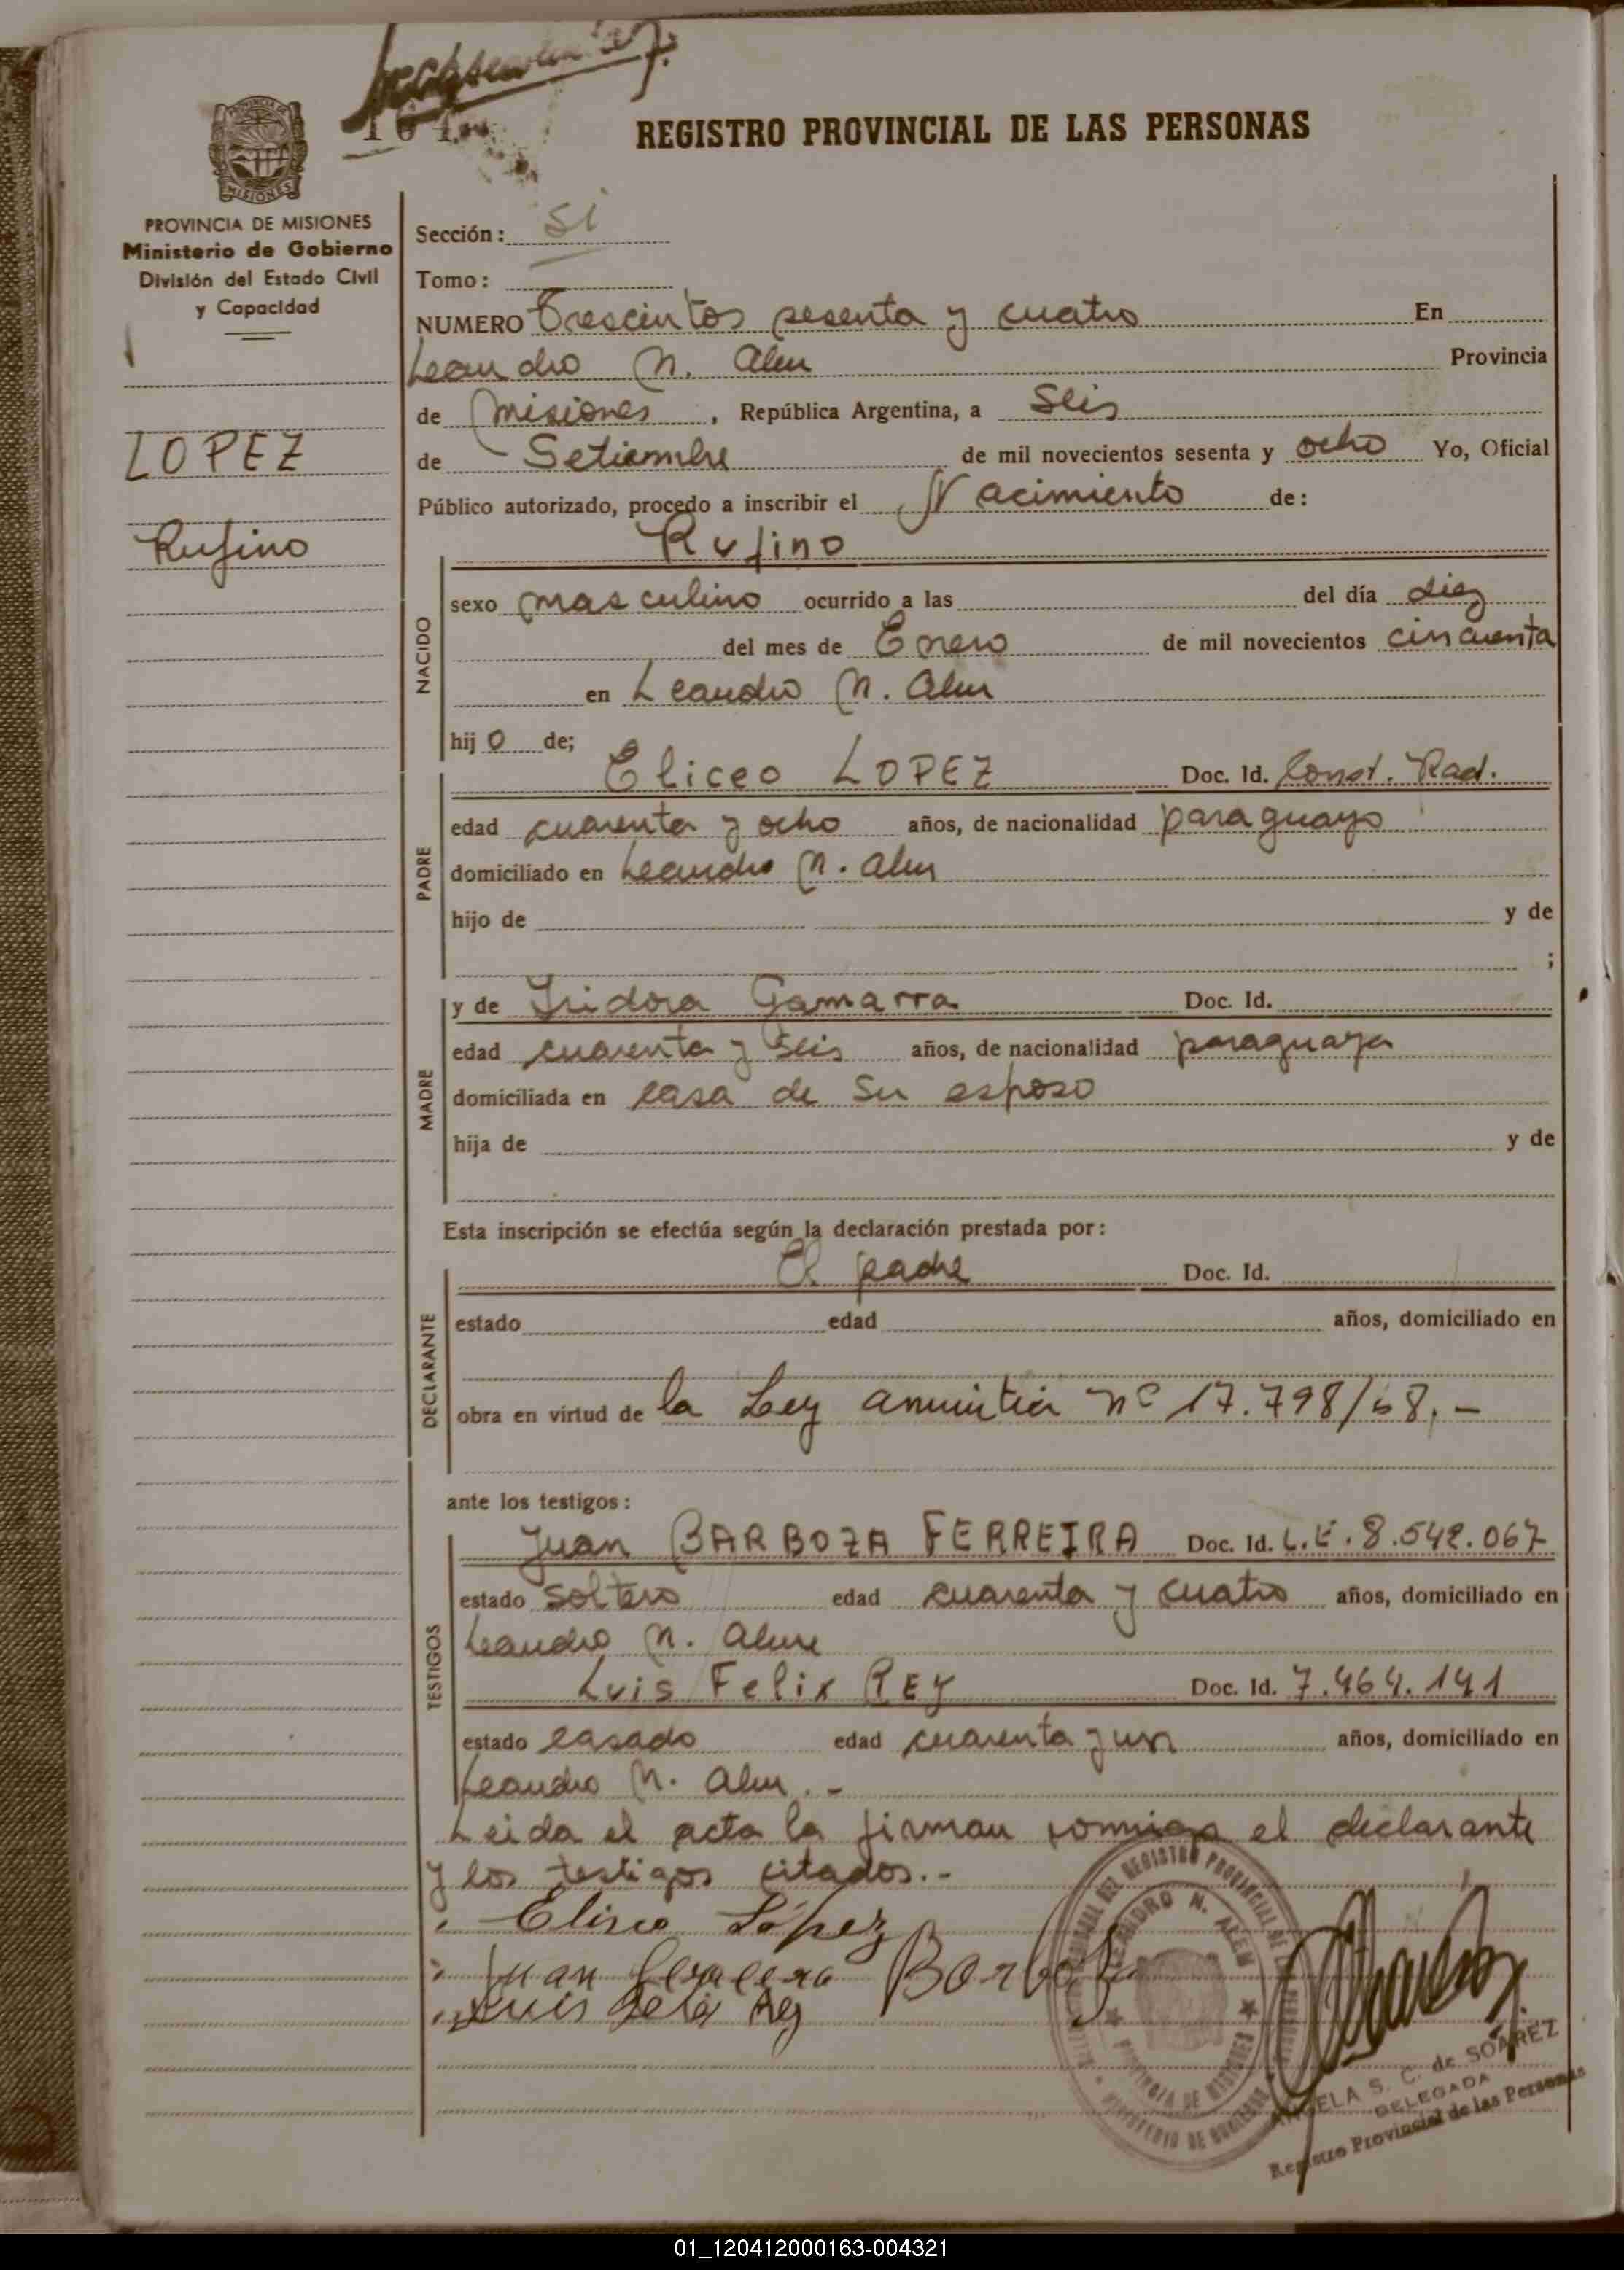 REGISTRO PROVINCIAL DE LAS PERSONAS
PROVINCIA DE
MISIONES
PROVINCIA DE MISIONES
Ministerio de Gobierno
División del Estado Civil
y Capacidad
LOPEZ
Rufino
Sección: si
Tomo:
NUMERO Trescintos sesenta y cuatro En
Leandro N. Alem Provincia
de Misiones, República Argentina, a Seis
de Setiembre de mil novecientos sesenta y ocho Yo, Oficial
Público autorizado, procedo a inscribir el Nacimiento de:
Rufino
NACIDO
sexo masculino ocurrido a las del día diez
del mes de Enero de mil novecientos cincuenta
en Leandro N. Alem
hijo de;
PADRE
Eliceo LOPEZ Doc. Id. Const. Rad.
edad cuarenta y ocho años, de nacionalidad paraguayo
domiciliado en Leandro N. Alem
hijo de y de
;
MADRE
y de Isidora Gamarra Doc. Id.
edad cuarenta y seis años, de nacionalidad paraguaya
domiciliada en casa de su esposo
hija de y de
Esta inscripción se efectúa según la declaración prestada por:
DECLARANTE
El padre Doc. Id.
estado edad años, domiciliado en
obra en virtud de la Ley amnistia nº 17.798/68.-
ante los testigos:
TESTIGOS
Juan BARBOZA FERREIRA Doc. Id. L.E. 8.542.067
estado soltero edad cuarenta y cuatro años, domiciliado en
Leandro N. Alem
Luis Felix REY Doc. Id. 7.464.141
estado casado edad cuarenta y un años, domiciliado en
Leandro N. Alem.-
Leida el acta la firman conmigo el declarante
y los testigos citados.-
Eliseo López
Juan Barboza
Luis Rey
LEANDRO N. ALEM
PROVINCIA DE MISIONES
ANGELA S. C. de SOAREZ
DELEGADA
Registro Provincial de las Personas
01_120412000163-004321